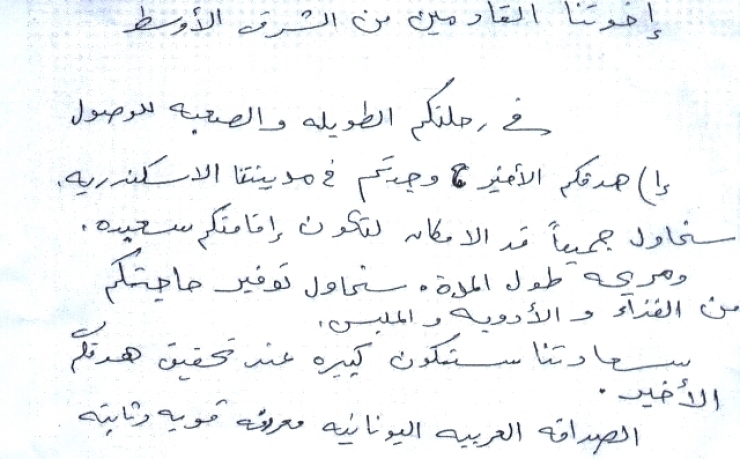 إخوتنا القادمين من الشرق الأوسط
في رحلتكم الطويله والصعبه للوصول
إلى هدفكم الأخير وجدتم في مدينتنا الاسكندريه.
سنحاول جميعاً قد الامكان لتكون إقامتكم سعيده.
ومريحه طول المدة. سنحاول توفير حاجيتكم
من الغذاء والأدويه والملبس.
سعادتنا ستكون كبيره عند تحقيق هدفكم
الأخير.
الصداقه العربيه اليونانيه معرفه قويه وثابته